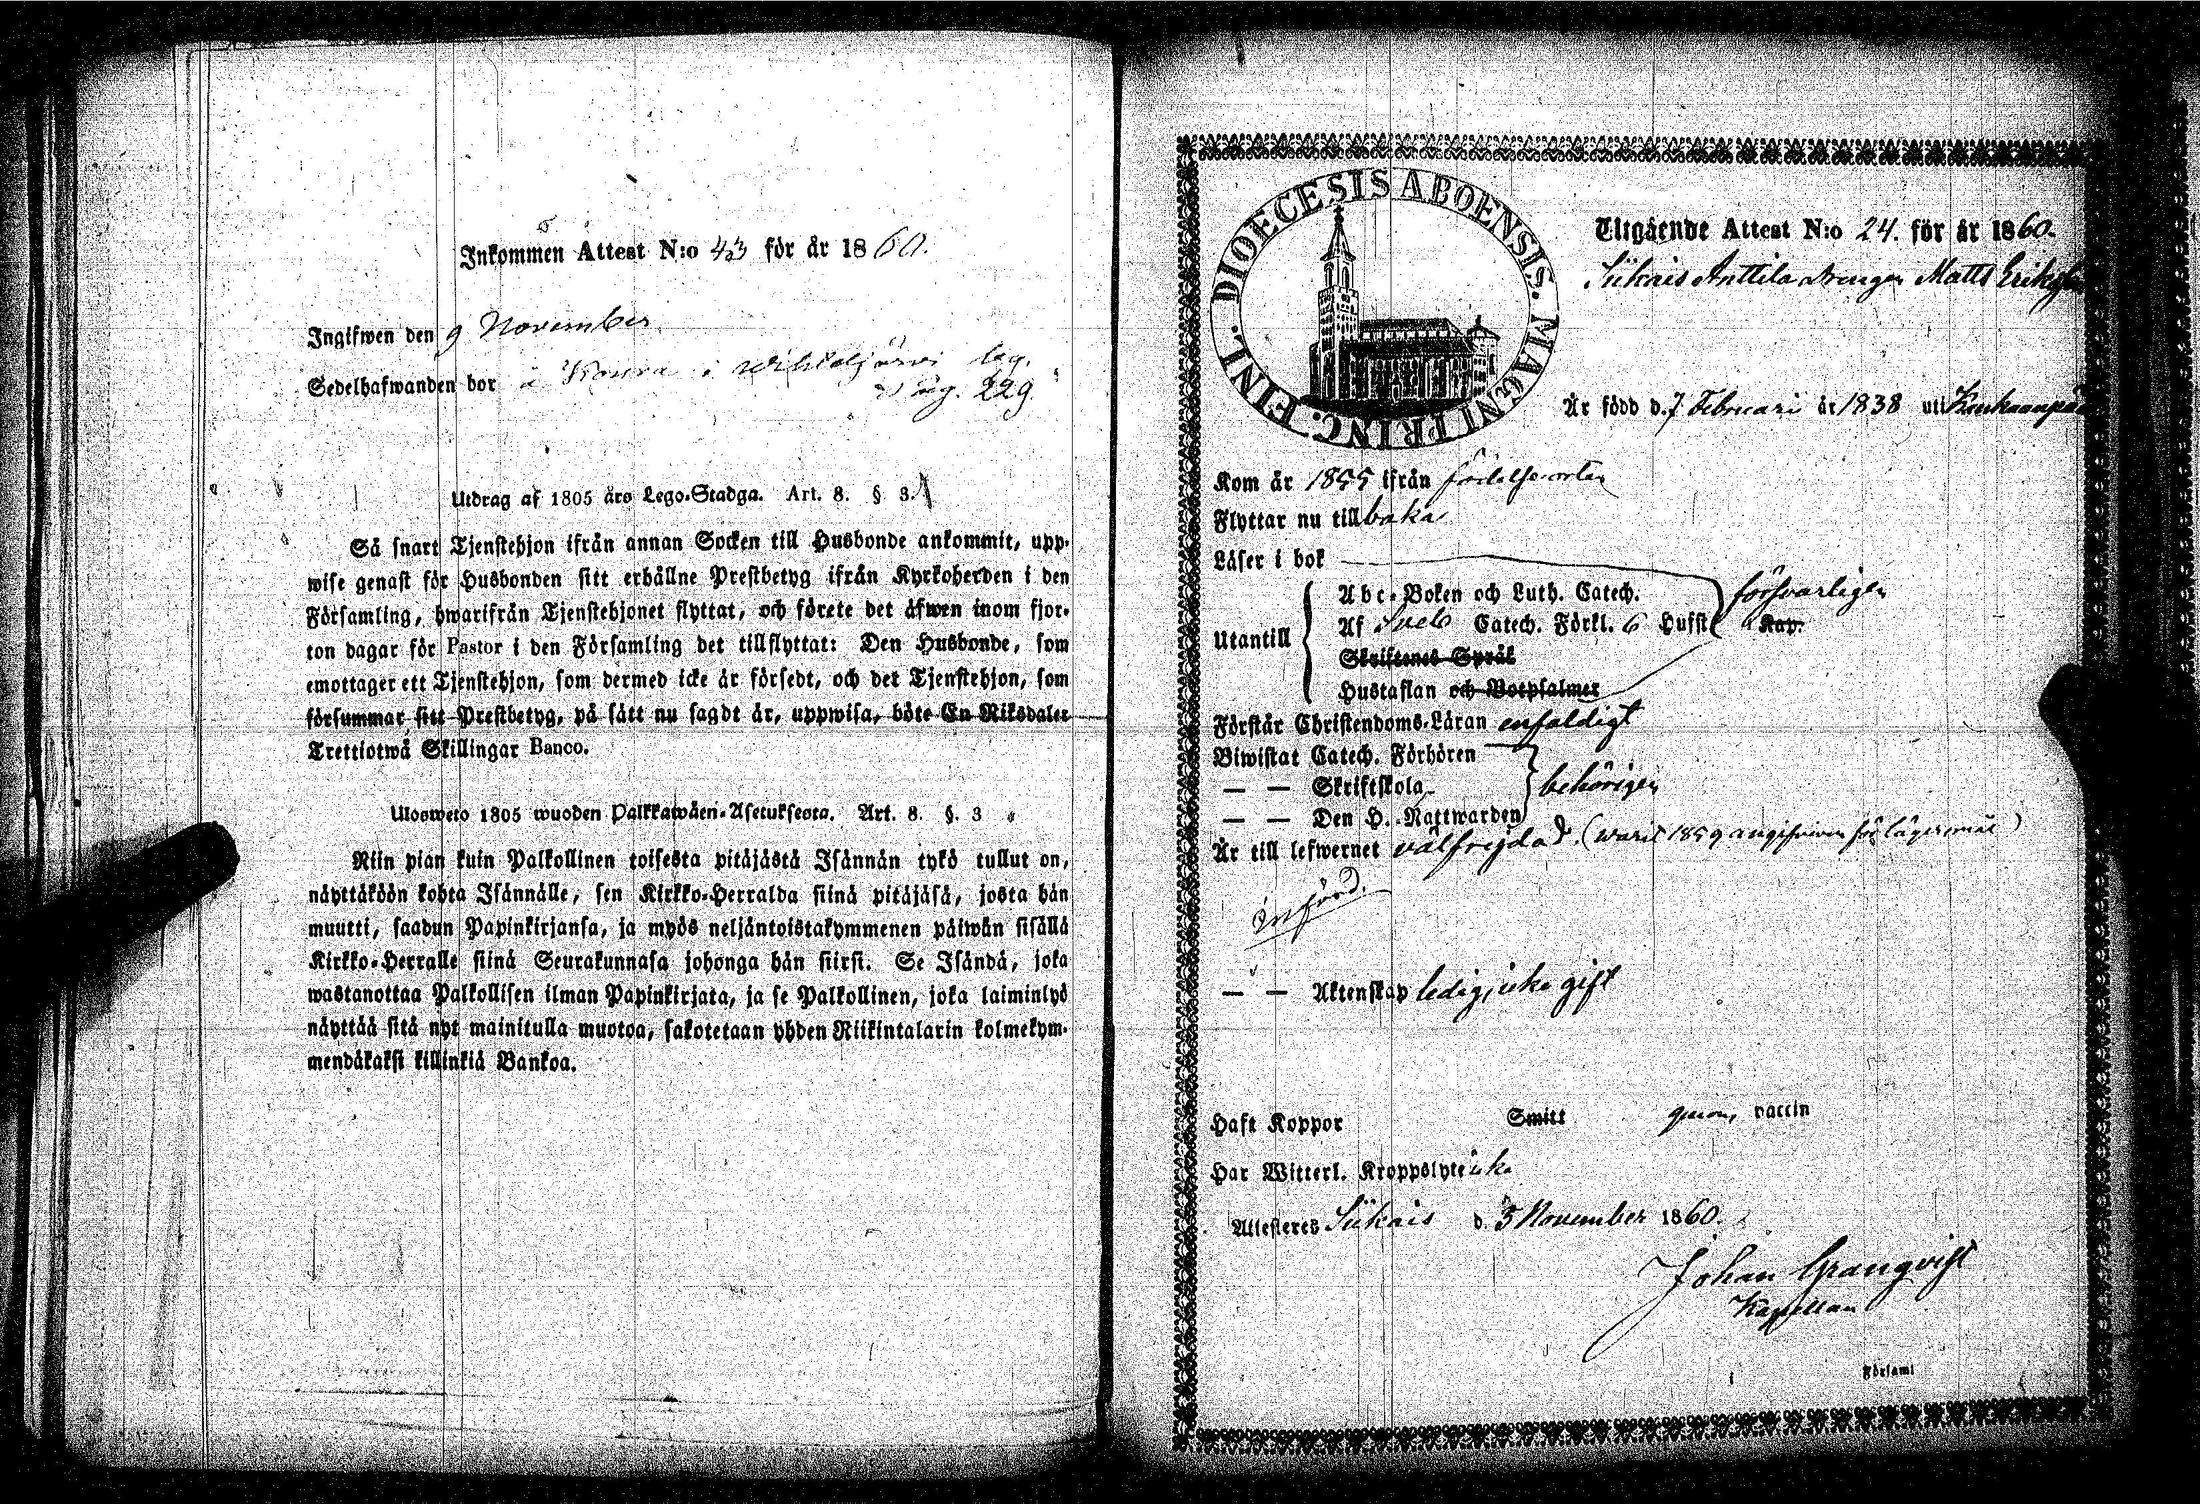 Inkommen Attest N:o 43 för år 1860.
Ingifwen den 9 November
Sedelhafwanden bor i
pag. 229
Utdrag af 1805 års Lego-Stadga. Art. 8. § 3.
Så snart Tjenstehjon ifrån annan Socken till Husbonde ankommit, upp-
wise genast för Husbonden sitt erhållne Prestbetyg ifrån Kyrkoherden i den
Församling, hwarifrån Tjenstehjonet flyttat, och förete det äfwen inom fjor-
ton dagar för Pastor i den Församling det tillflyttat: Den Husbonde, som
emottager ett Tjenstehjon, som dermed icke är försedt, och det Tjenstehjon, som
försummar sitt Prestbetyg, på sätt nu sagdt är, uppwisa, böte En Riksdaler
Trettiotwå Skillingar Banco.
Ulosweto 1805 wuoden Palkkawäen-Asetuksesta. Art. 8. §. 3
Niin pian kuin Palkollinen toisesta pitäjästä Isännän tykö tullut on,
näyttäköön kohta Isännälle, sen Kirkko-Herralda siinä pitäjäsä, josta hän
muutti, saadun Papinkirjansa, ja myös neljäntoistakymmenen päiwän sisällä
Kirkko-Herralle siinä Seurakunnasa johonga hän siirsi. Se Isändä, joka
wastanottaa Palkollisen ilman Papinkirjata, ja se Palkollinen, joka laiminlyö
näyttää sitä nyt mainitulla muotoa, sakotetaan yhden Riikintalarin kolmekym-
mendäkaksi killinkiä Bankoa.
DIOECESIS ABOENSIS. MAGNI PRINC. FINL.
Utgående Attest N:o 24. för år 1860.
Siikais Anttila drengen Matts
Är född d. 7 Februari år 1838 uti
Kom år 1855 ifrån födelseorten
Flyttar nu tillbaka
Läser i bok
Abc-Boken och Luth. Catech. försvarligen
Utantill Af Sveb Catech. Förkl. 6 Hufst Kap.
Skriftenes Språk
Hustaflan och Botpsalmer
Förstår Christendoms-Läran enfaldigt
Biwistat Catech. Förhören
— — Skriftskola behörigen
— — Den H. Nattwarden
Är till lefwernet välfrejdad. (warit 1859 angifwen för lägersmål)
införd.
— — Äktenskap ledig, icke gift
Haft Koppor Smitt genom vaccin
Har Witterl. Kroppslyte icke
Attesteres Siikais d. 5 November 1860.
Johan Granqvist
Kapellan
Församl